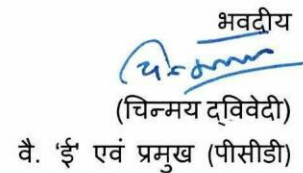 भवदीय
(चिन्मय द्विवेदी)
वै. 'ई' एवं प्रमुख (पीसीडी)